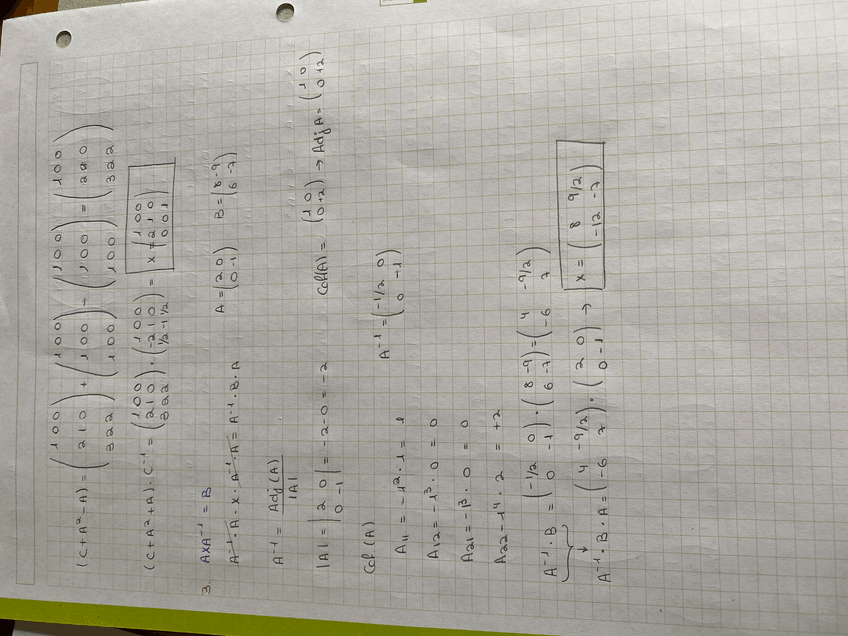 (C+A²-A) = (1 0 0 / 2 1 0 / 3 2 2) + (1 0 0 / 1 0 0 / 1 0 0) - (1 0 0 / 1 0 0 / 1 0 0) = (1 0 0 / 2 2 0 / 3 2 2)
(C+A²+A) · C⁻¹ = (1 0 0 / 2 1 0 / 3 2 2) · (1 0 0 / -2 1 0 / 1/2 -1 1/2) = X = (1 0 0 / 2 1 0 / 0 0 1)
3. AXA⁻¹ = B
A = (2 0 / 0 -1) B = (8 -9 / 6 -7)
A⁻¹ · A · X · A⁻¹ · A = A⁻¹ · B · A
A⁻¹ = Adj(A) / |A|
|A| = |2 0 / 0 -1| = -2-0 = -2
Cof(A) = (1 0 / 0 +2) → Adj A = (1 0 / 0 +2)
Cof (A)
A⁻¹ = (-1/2 0 / 0 -1)
A₁₁ = -1² · 1 = 1
A₁₂ = -1³ · 0 = 0
A₂₁ = -1³ · 0 = 0
A₂₂ -1⁴ · 2 = +2
A⁻¹ · B = (-1/2 0 / 0 -1) · (8 -9 / 6 -7) = (4 -9/2 / -6 7)
A⁻¹ · B · A = (4 -9/2 / -6 7) · (2 0 / 0 -1) → X = (8 9/2 / -12 -7)